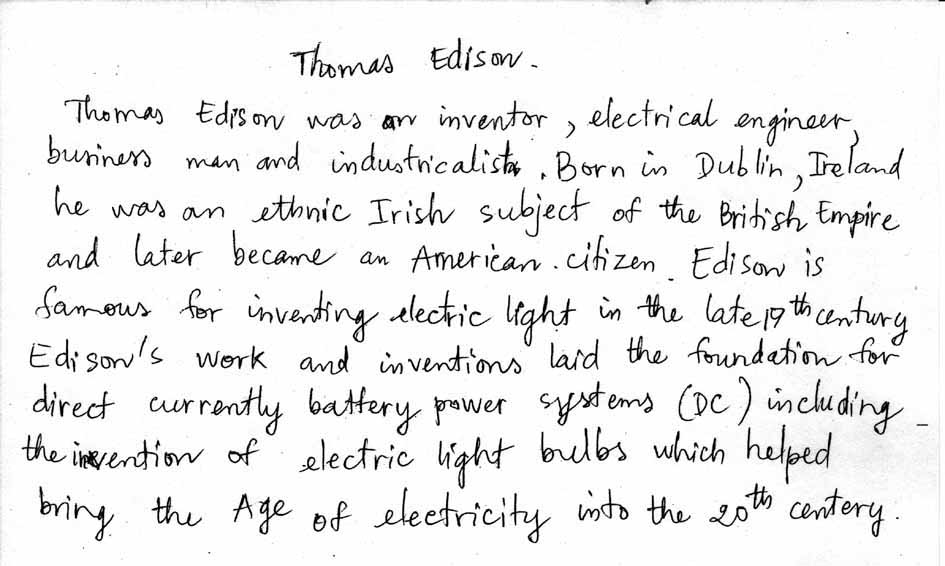 Thomas Edison.
Thomas Edison was an inventor, electrical engineer,
business man and industricalist. Born in Dublin, Ireland
he was an ethnic Irish subject of the British Empire
and later became an American. citizen. Edison is
famous for inventing electric light in the late 19th century
Edison's work and inventions laid the foundation for
direct currently battery power systems (DC) including
the invention of electric light bulbs which helped
bring the Age of electricity into the 20th centery.